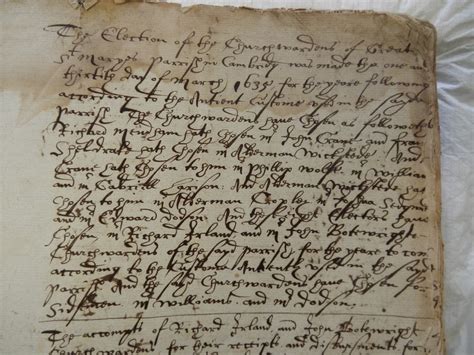 The Election of the Churchwardens of Great
St Maryes Parrish in Cambridg was made the one and
thirtith day of March 1635 for the yeare following
according to the Antient Custome used in the said
Parrish The Churchwardens have Chosen as followeth
Richard hath Chosen mr John Crane and
hath Chosen mr Alderman Wickstede And
Crane hath Chosen to him mr Phillip Wolfe mr William
and mr Gabriell And Alderman Wickstede has
Chosen to him mr Alderman mr Joshua
and mr Edward Dodson And the Electors have
Chosen mr Richard Irland and mr John Botewright
Churchwardens of the said Parrish for the yeare to come
according to the Custome Antiently used in the said
Parrish And the said Churchwardens have Chosen for
Sidesmen mr Williams and mr Dodson
The accompts of Richard Irland and John Bootewright
Churchwardens for their receipts and disbursments for